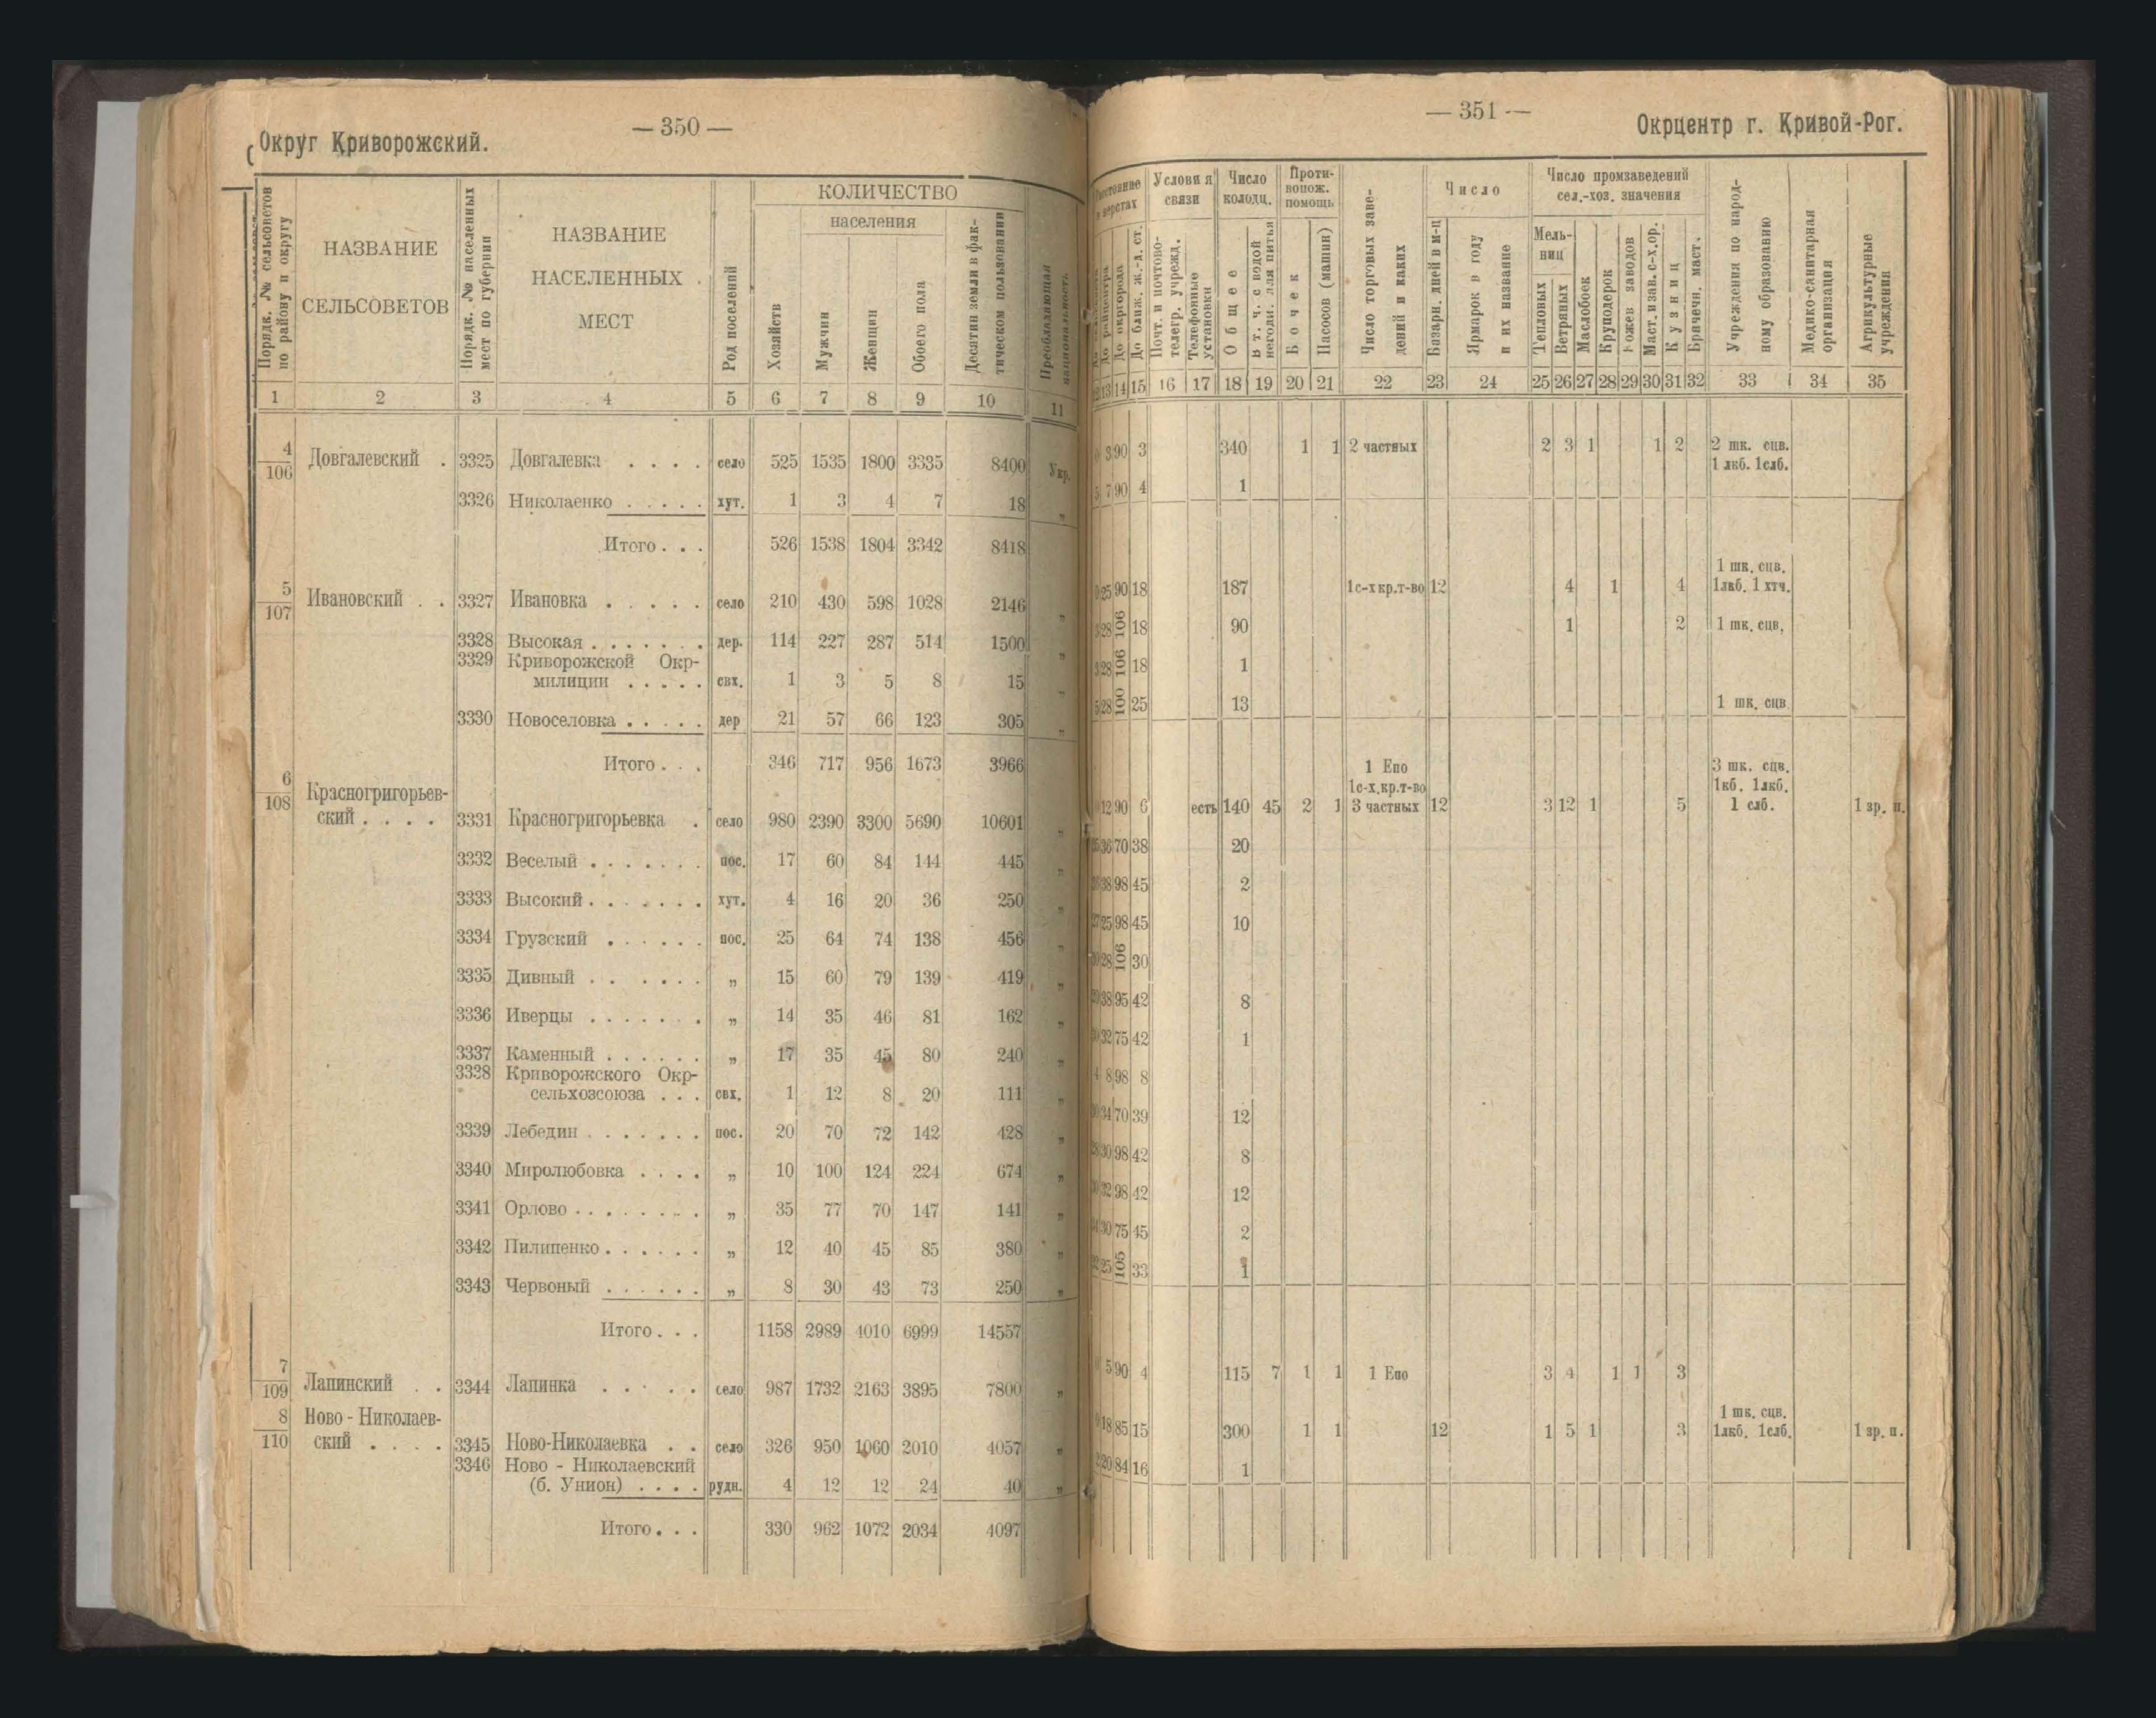 Округ Криворожский.
— 350 —
Порядк. № сельсоветов по району и округу
НАЗВАНИЕ СЕЛЬСОВЕТОВ
Порядк. № населенных мест по губернии
НАЗВАНИЕ НАСЕЛЕННЫХ МЕСТ
Род поселений
КОЛИЧЕСТВО
населения
Хозяйств
Мужчин
Женщин
Обоего пола
Десятин земли в фактическом пользовании
Преобладающая национальность
1 2 3 4 5 6 7 8 9 10 11
4/106 Довгалевский . 3325 Довгалевка . . . . село 525 1535 1800 3335 8400 Укр.
3326 Николаенко . . . . . хут. 1 3 4 7 18 „
Итого . . . 526 1538 1804 3342 8418
5/107 Ивановский . . 3327 Ивановка . . . . . село 210 430 598 1028 2146 „
3328 Высокая . . . . . . . дер. 114 227 287 514 1500 „
3329 Криворожской Окр-
милиции . . . . . свх. 1 3 5 8 15 „
3330 Новоселовка . . . . . дер 21 57 66 123 305 „
Итого . . . 346 717 956 1673 3966
6/108 Красногригорьев-
ский . . . . 3331 Красногригорьевка . село 980 2390 3300 5690 10601 „
3332 Веселый . . . . . . . пос. 17 60 84 144 445 „
3333 Высокий . . . . . . . хут. 4 16 20 36 250 „
3334 Грузский . . . . . . пос. 25 64 74 138 456 „
3335 Дивный . . . . . . „ 15 60 79 139 419 „
3336 Иверцы . . . . . . . „ 14 35 46 81 162 „
3337 Каменный . . . . . . „ 17 35 45 80 240 „
3338 Криворожского Окр-
сельхозсоюза . . . свх. 1 12 8 20 111 „
3339 Лебедин . . . . . . . пос. 20 70 72 142 428 „
3340 Миролюбовка . . . . „ 10 100 124 224 674 „
3341 Орлово . . . . . . . . „ 35 77 70 147 141 „
3342 Пилипенко . . . . . . „ 12 40 45 85 380 „
3343 Червоный . . . . . . „ 8 30 43 73 250 „
Итого . . . 1158 2989 4010 6999 14557
7/109 Лапинский . . 3344 Лапинка . . . . . село 987 1732 2163 3895 7800 „
8/110 Ново - Николаев-
ский . . . . 3345 Ново-Николаевка . . село 326 950 1060 2010 4057 „
3346 Ново - Николаевский
(б. Унион) . . . . рудн. 4 12 12 24 40 „
Итого . . . 330 962 1072 2034 4097
— 351 —
Окрцентр г. Кривой-Рог.
Расстояние в верстах
До райцентра
До окргорода
До ближ. ж.-д. ст.
Условия связи
Почт. и почтово-телегр. учрежд.
Телефонные установки
Число колодц.
Общее
В т. ч. с водой негодн. для питья
Противопож. помощь
Бочек
Насосов (машин)
Число торговых заведений и каких
Число
Базарн. дней в м-ц
Ярмарок в году и их название
Число промзаведений сел.-хоз. значения
Мельниц
Тепловых
Ветряных
Маслобоек
Круподерок
Кожев заводов
Маст. и зав. с-х. ор.
Кузниц
Бричечн. маст.
Учреждения по народному образованию
Медико-санитарная организация
Агрикультурные учреждения
13 14 15 16 17 18 19 20 21 22 23 24 25 26 27 28 29 30 31 32 33 34 35
3 90 3 340 1 1 2 частных 2 3 1 1 2 2 шк. сцв.
1 лкб. 1слб.
7 90 4 1
1 шк. сцв.
25 90 18 187 1с-х кр.т-во 12 4 1 4 1лкб. 1 хтч.
28 106 18 90 1 2 1 шк. сцв.
28 106 18 1
28 100 25 13 1 шк. сцв
1 Епо 3 шк. сцв.
1с-х.кр.т-во 1кб. 1лкб.
12 90 6 есть 140 45 2 1 3 частных 12 3 12 1 5 1 слб. 1 зр. п.
36 70 38 20
38 98 45 2
25 98 45 10
28 106 30
38 95 42 8
32 75 42 1
4 8 98 8
34 70 39 12
30 98 42 8
32 98 42 12
30 75 45 2
25 105 33 1
5 90 4 115 7 1 1 1 Епо 3 4 1 1 3
1 шк. сцв.
18 85 15 300 1 1 12 1 5 1 3 1лкб. 1слб. 1 зр. п.
20 84 16 1